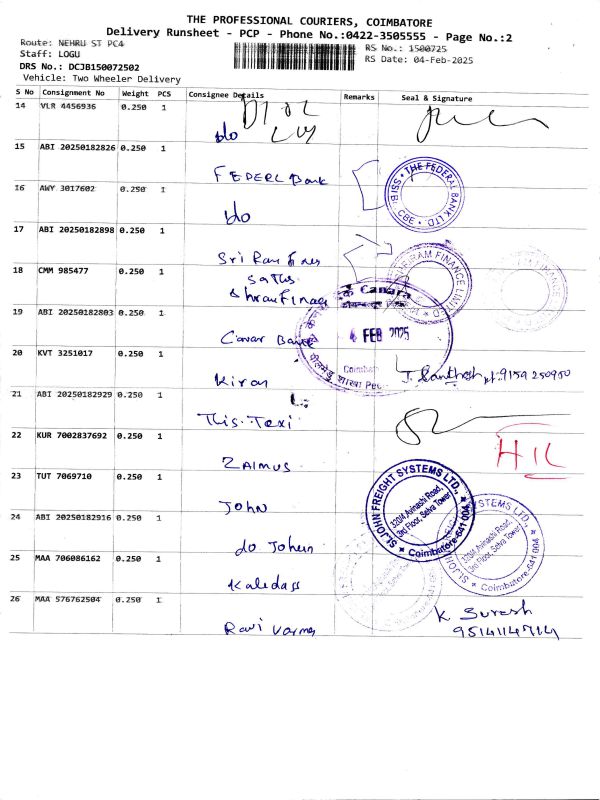 THE PROFESSIONAL COURIERS, COIMBATORE
Delivery Runsheet - PCP - Phone No.:0422-3505555 - Page No.:2
Route: NEHRU ST PC4
RS No.: 1500725
Staff: LOGU
RS Date: 04-Feb-2025
DRS No.: DCJB150072502
Vehicle: Two Wheeler Delivery
S No Consignment No Weight PCS Consignee Details Remarks Seal & Signature
14 VLR 4456936 0.250 1
do
15 ABI 20250182826 0.250 1
FEDERL Bank
THE FEDERAL BANK LTD
CBE
16 AWY 3017602 0.250 1
do
17 ABI 20250182898 0.250 1
Sri Ram Fines
18 CMM 985477 0.250 1
Sathis
ShramFinag
RAM FINANCE LIMITED
19 ABI 20250182803 0.250 1
Canar Bank
Canara
4 FEB 2025
Coimbat
पीलमेडु शाखा Pee
20 KVT 3251017 0.250 1
Kiran
J. Santhosh pt:9159250950
21 ABI 20250182929 0.250 1
This Texi
22 KUR 7002837692 0.250 1
ZAIMUS
HIL
23 TUT 7069710 0.250 1
John
ST.JOHN FREIGHT SYSTEMS LTD.,
320/4 Avinashi Road,
3rd Floor, Selva Tower
Coimbatore-641 004
24 ABI 20250182916 0.250 1
do John
ST.JOHN SYSTEMS LTD.,
Avinashi Road,
3rd Floor, Selva Tower
Coimbatore-641 004
25 MAA 706086162 0.250 1
Kalidass
26 MAA 576762504 0.250 1
Ravi Varma
K Suresh
9514114714